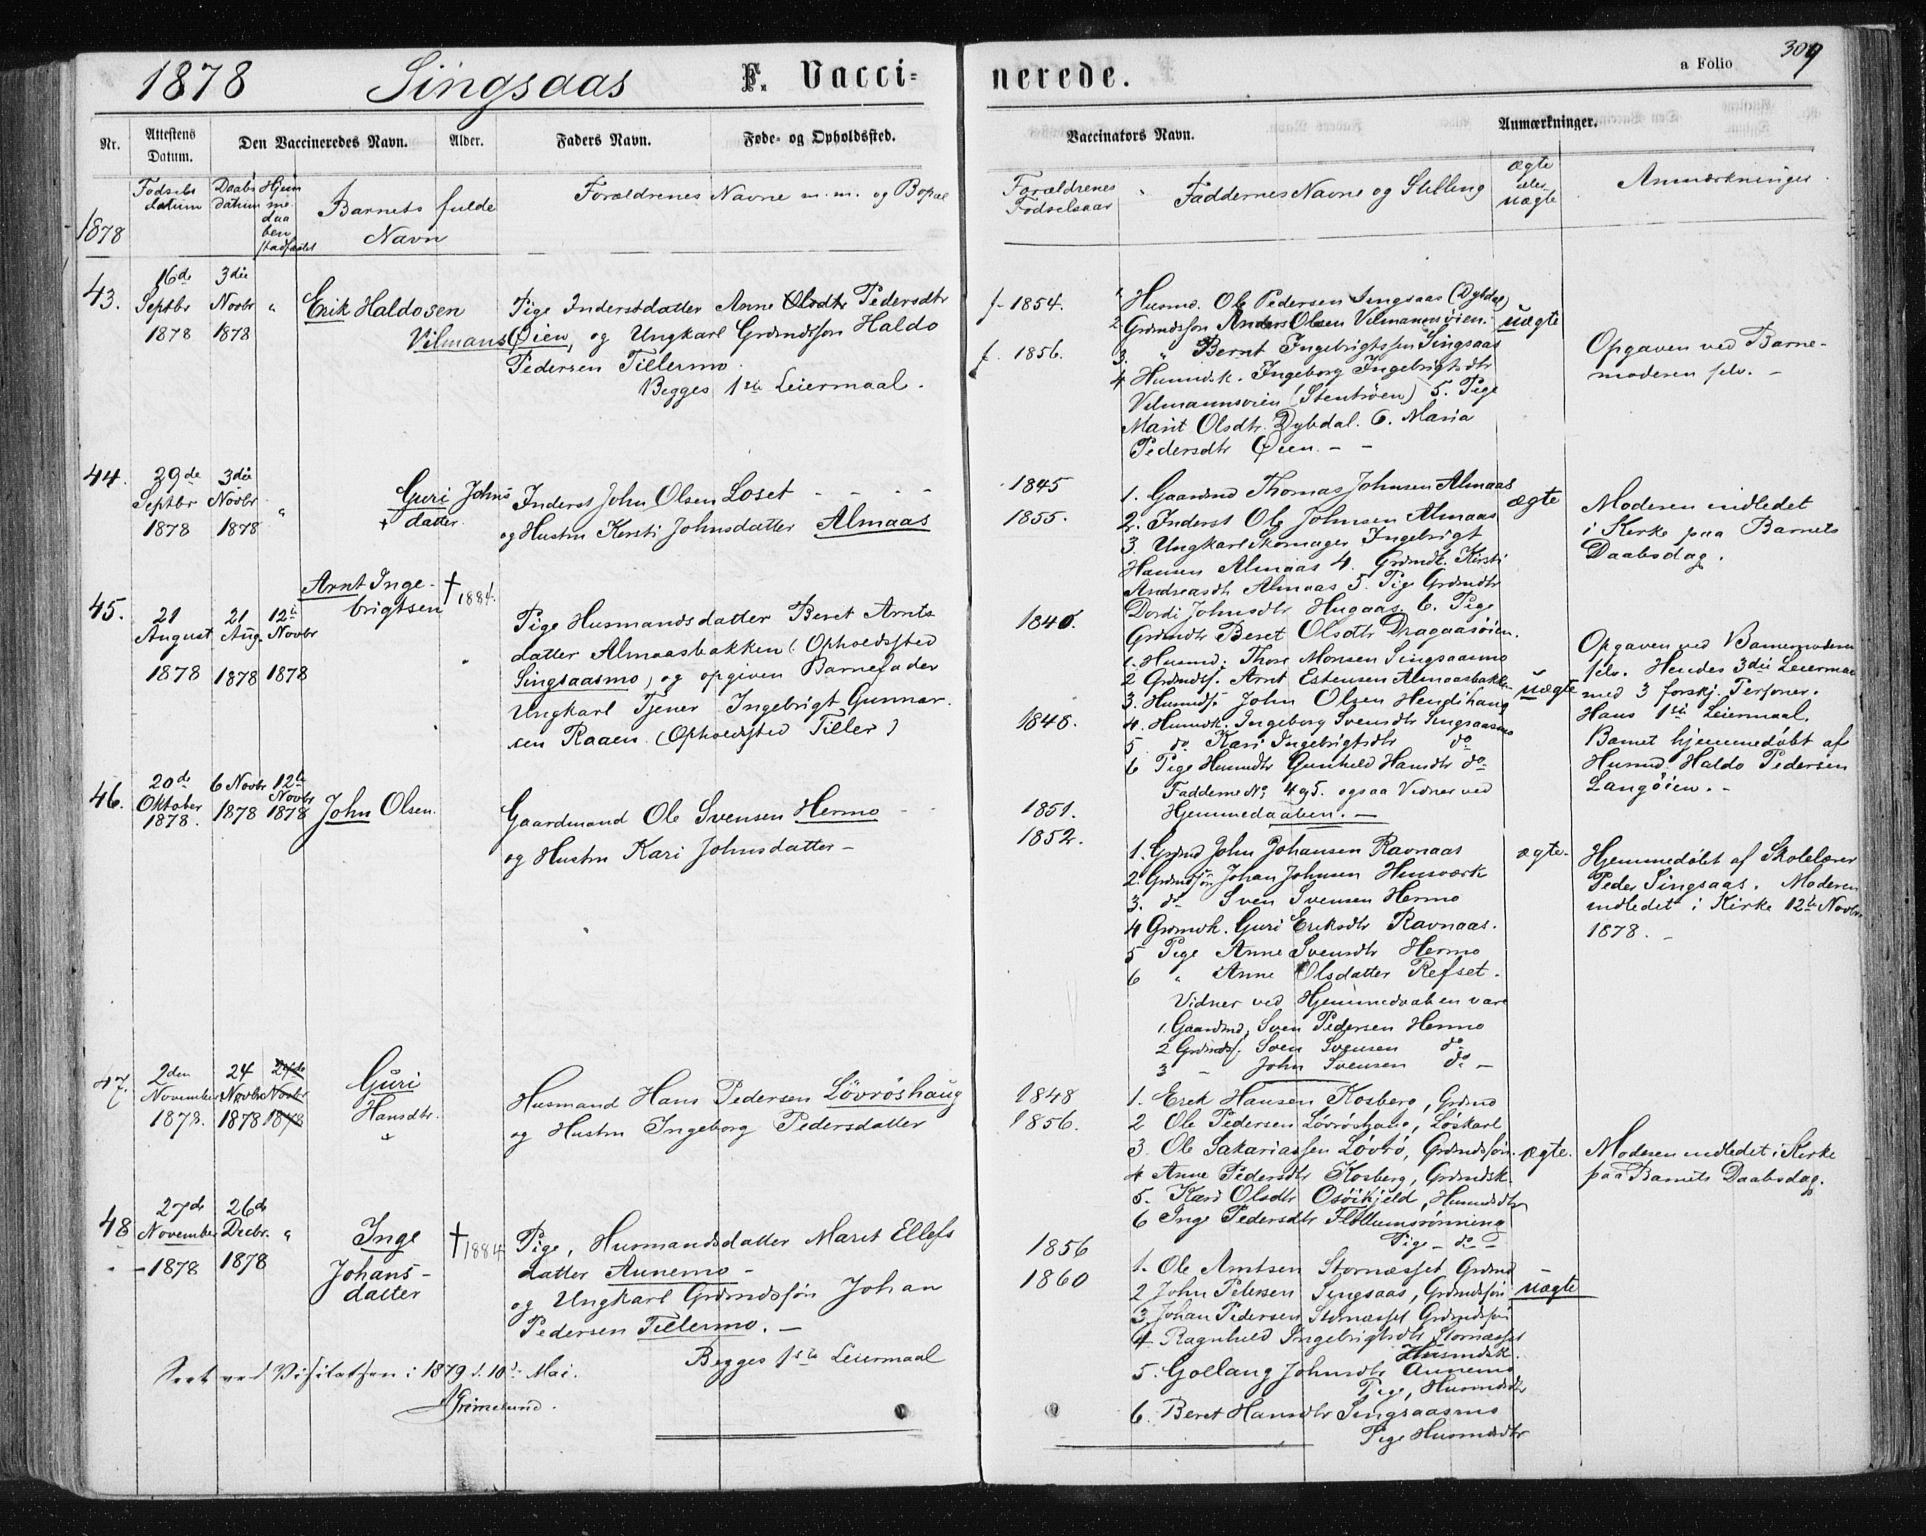 1878 Singsaas F. Vacci-
nerede. a Folio 309
Nr. Attestens Datum. Den Vaccineredes Navn. Alder. Faders Navn. Føde- og Opholdssted.
Vaccinators Navn. Anmærkninger.
1878 Fødsels datum Daabs datum Hjemmedaaben stadfæstet Barnets fulde Navn Forældrenes Navne m. m. og Bopæl
Forældrenes Fødselsaar Faddernes Navne og Stilling ægte eller uægte Anmærkninger.
43. 16de Septbr 1878 3die Novbr 1878 "
Erik Haldosen
Vilmans Øien
Pige Inderstdatter Anne Olsdtr Pedersdtr
Øien, og Ungkarl Grdmdssøn Haldo
Pedersen Tillermo.
Begges 1ste Leiermaal.
f. 1854.
f. 1856.
1 Husmd. Ole Pedersen Singsaas (Dybdal)
2 Grdmdssøn Anders Olsen Vilmannsøien.
3. " Bernt Ingebrigtsen Singsaas
4 Husmdsk. Ingeborg Ingebrigtsdtr
Vilmannsøien (Stentrøen) 5. Pige
Marit Olsdtr. Dybdal. 6. Maria
Pedersdtr Øien. - -
uægte
Opgaven ved Barne-
moderen selv. -
44. 29de Septbr 1878 3die Novbr 1878 "
Guri Johns
datter.
Inderst John Olsen Løset - - - -
og Hustru Kersti Johnsdatter Almaas
1845
1855.
1. Gaardmd Thomas Johnsen Almaas
2. Inderst Ole Johnsen Almaas
3. Ungkarl Skomager Ingebrigt
Hansen Almaas 4. Grdmdk. Kirsti
Andreasdtr Almaas 5. Pige Grdmdtr
Dordi Johnsdtr Hugaas. 6. Pige
Grdmdtr Beret Olsdtr Dragaasøien.
ægte
Moderen indledet
i Kirke paa Barnets
Daabsdag.
45. 21 August 1878 21 Aug. 1878 12te Novbr 1878
Arnt Inge-
brigtsen
† 1884.
Pige Husmandsdatter Beret Arnts
datter Almaasbakken (Opholdsted
Singsaasmo) og opgiven Barnefader
Ungkarl Tjener Ingebrigt Gunnar-
sen Raaen. (Opholdsted Tiller)
1840.
1848.
1. Husmd. Thore Monsen Singsaasmo
2 Grdmdsf. Arnt Estensen Almaasbakken
3. Husmdsf. John Olsen Hendishaug
4. Husmdk. Ingeborg Svensdtr Singsaasmo
5 do Kari Ingebrigtsdtr do
6 Pige Husmdtr Gunhild Hansdtr do
Fadderne No. 4 og 5. ogsaa Vidner ved
Hjemmedaaben. -
uægte
Opgaven ved Barnemoderen
selv. Hendes 3die Leiermaal
med 3 forskj. Personer.
Hans 1ste Leiermaal.
Barnet hjemmedøbt af
Husmd. Haldo Pedersen
Langøien. -
46. 20de Oktober 1878. 6 Novbr 1878 12te Novbr 1878
John Olsen.
Gaardmand Ole Svensen Hermo -
og Hustru Kari Johnsdatter -
1851.
1852.
1. Grdmd John Johansen Ravnaas
2. Grdmdssøn Johan Johnsen Hinsværk
3. do Sven Svensen Hermo
4 Grdmdk. Guri Eriksdtr Ravnaas.
5 Pige Anne Svensdtr Hermo
6 " Anne Olsdatter Refset.
Vidner ved Hjemmedaaben vare
1. Gaardmd, Sven Pedersen Hermo
2 Grdmdsf. Sven Svensen do
3 - John Svensen do -
ægte.
Hjemmedøbt af Skolelærer
Peder Singsaas. Moderen
indledet i Kirke 12te Novbr
1878. -
47. 2den November 1878. 24 Novbr 1878 24de Novbr 1878
Guri
Hansdtr.
Husmand Hans Pedersen Løvrøshaug
og Hustru Ingeborg Pedersdatter
1848
1856.
1. Erik Hansen Kosberg, Grdmd
2 Ole Pedersen Løvrøshaug, Løskarl
3. Ole Sakariassen Løvrø, Grdmdssøn.
4 Anne Pedersdtr Kosberg, Grdmdsk.
5. Kari Olsdtr Osøikjeld, Husmdsdtr
6 Inge Pedersdtr Flottumsrønning
Pige - do -
ægte.
Moderen indledet i Kirke
paa Barnets Daabsdag.
48 27de November 1878 26de Decbr. 1878 "
Inge
Johans-
datter
† 1884
Pige, Husmandsdatter Marit Ellefs
datter Aunemo -
og Ungkarl Grdmdssøn Johan
Pedersen Tillermo. -
Begges 1ste Leiermaal
1856
1860
1. Ole Arntsen Stornæsset Grdmd
2 John Petersen Singsaas, Grdmdssøn
3 Johan Pedersen Stornæsset Grdmdssøn
4 Ragnhild Ingebrigtsdtr Stornæsset
Husmdsk.
5. Gollaug Johnsdtr Aunemo
Pige, Husmdsdtr
6. Beret Hansdtr Singsaasmo
Pige Husmdsdtr
uægte
Seet ved Visitatsen i 1879 d. 10de Mai.
Grimelund.